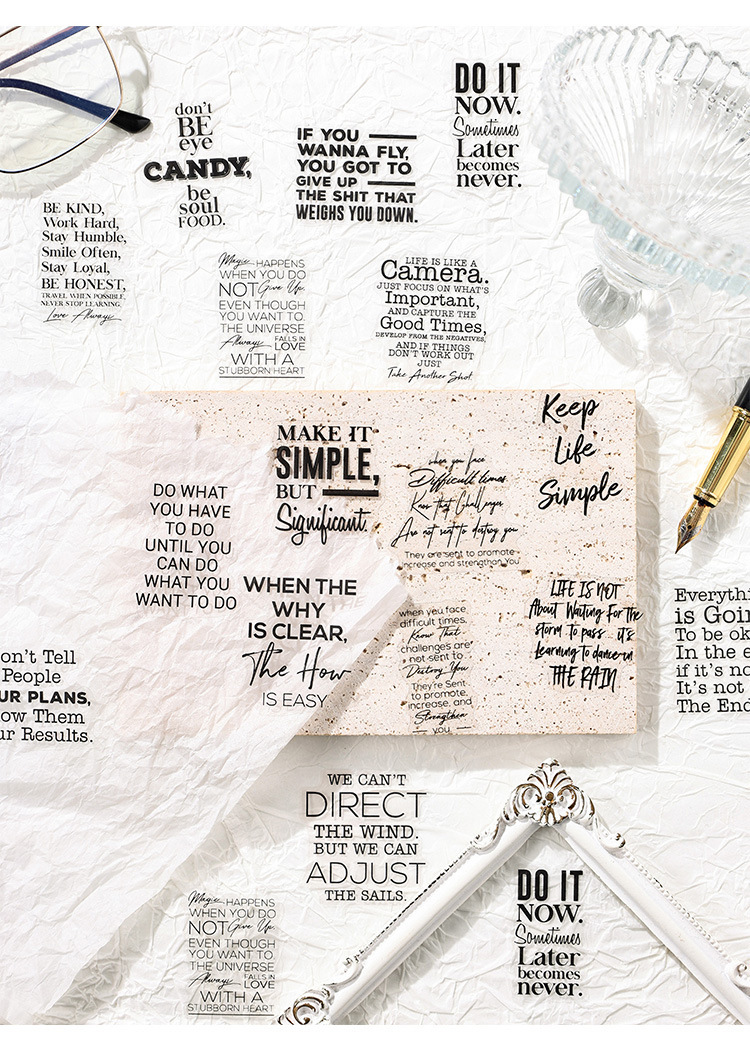 don't
BE
eye
CANDY,
be
soul
FOOD.
IF YOU
WANNA FLY,
YOU GOT TO
GIVE UP
THE SHIT THAT
WEIGHS YOU DOWN.
DO IT
NOW.
Sometimes
Later
becomes
never.
BE KIND,
Work Hard,
Stay Humble,
Smile Often,
Stay Loyal,
BE HONEST,
TRAVEL WHEN POSSIBLE,
NEVER STOP LEARNING.
Love Always
Magic HAPPENS
WHEN YOU DO
NOT Give Up.
EVEN THOUGH
YOU WANT TO.
THE UNIVERSE
Always FALLS IN
LOVE
WITH A
STUBBORN HEART
LIFE IS LIKE A
Camera.
JUST FOCUS ON WHAT'S
Important,
AND CAPTURE THE
Good Times,
DEVELOP FROM THE NEGATIVES,
AND IF THINGS
DON'T WORK OUT
JUST
Take Another Shot.
MAKE IT
SIMPLE,
BUT
Significant.
when you face
Difficult times.
Know that Challenges
Are not sent to destroy you
They are sent to promote
increase and strengthen You
Keep
Life
Simple
DO WHAT
YOU HAVE
TO DO
UNTIL YOU
CAN DO
WHAT YOU
WANT TO DO
WHEN THE
WHY
IS CLEAR,
The How
IS EASY
when you face
difficult times,
Know That
challenges are
not sent to
Destroy You
They're Sent
to promote,
increase, and
Strengthen
you
LIFE IS NOT
About Waiting For the
storm to pass it's
Learning to dance in
THE RAIN
Everythi
is Goin
To be ok
In the e
if it's no
It's not
The End
on't Tell
People
UR PLANS,
ow Them
ur Results.
WE CAN'T
DIRECT
THE WIND.
BUT WE CAN
ADJUST
THE SAILS.
Magic HAPPENS
WHEN YOU DO
NOT Give Up.
EVEN THOUGH
YOU WANT TO.
THE UNIVERSE
Always FALLS IN
LOVE
WITH A
STUBBORN HEART
DO IT
NOW.
Sometimes
Later
becomes
never.